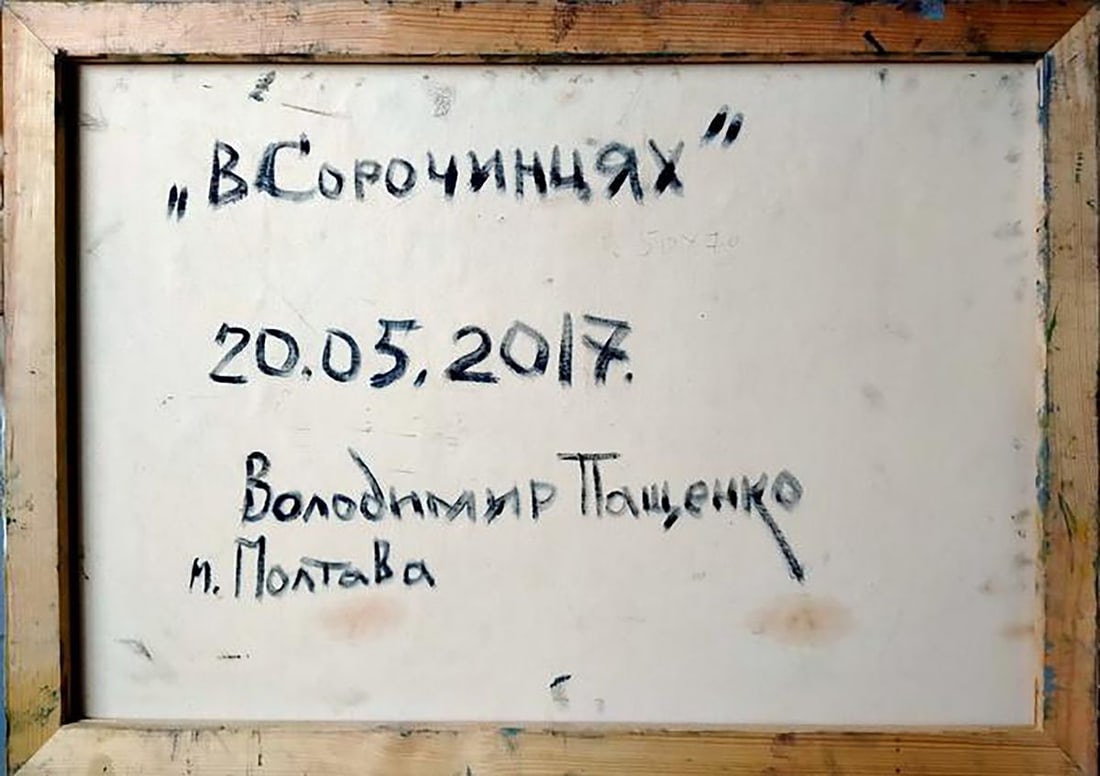 „В Сорочинцях"
50x70
20.05.2017.
Володимир Пащенко
м. Полтава